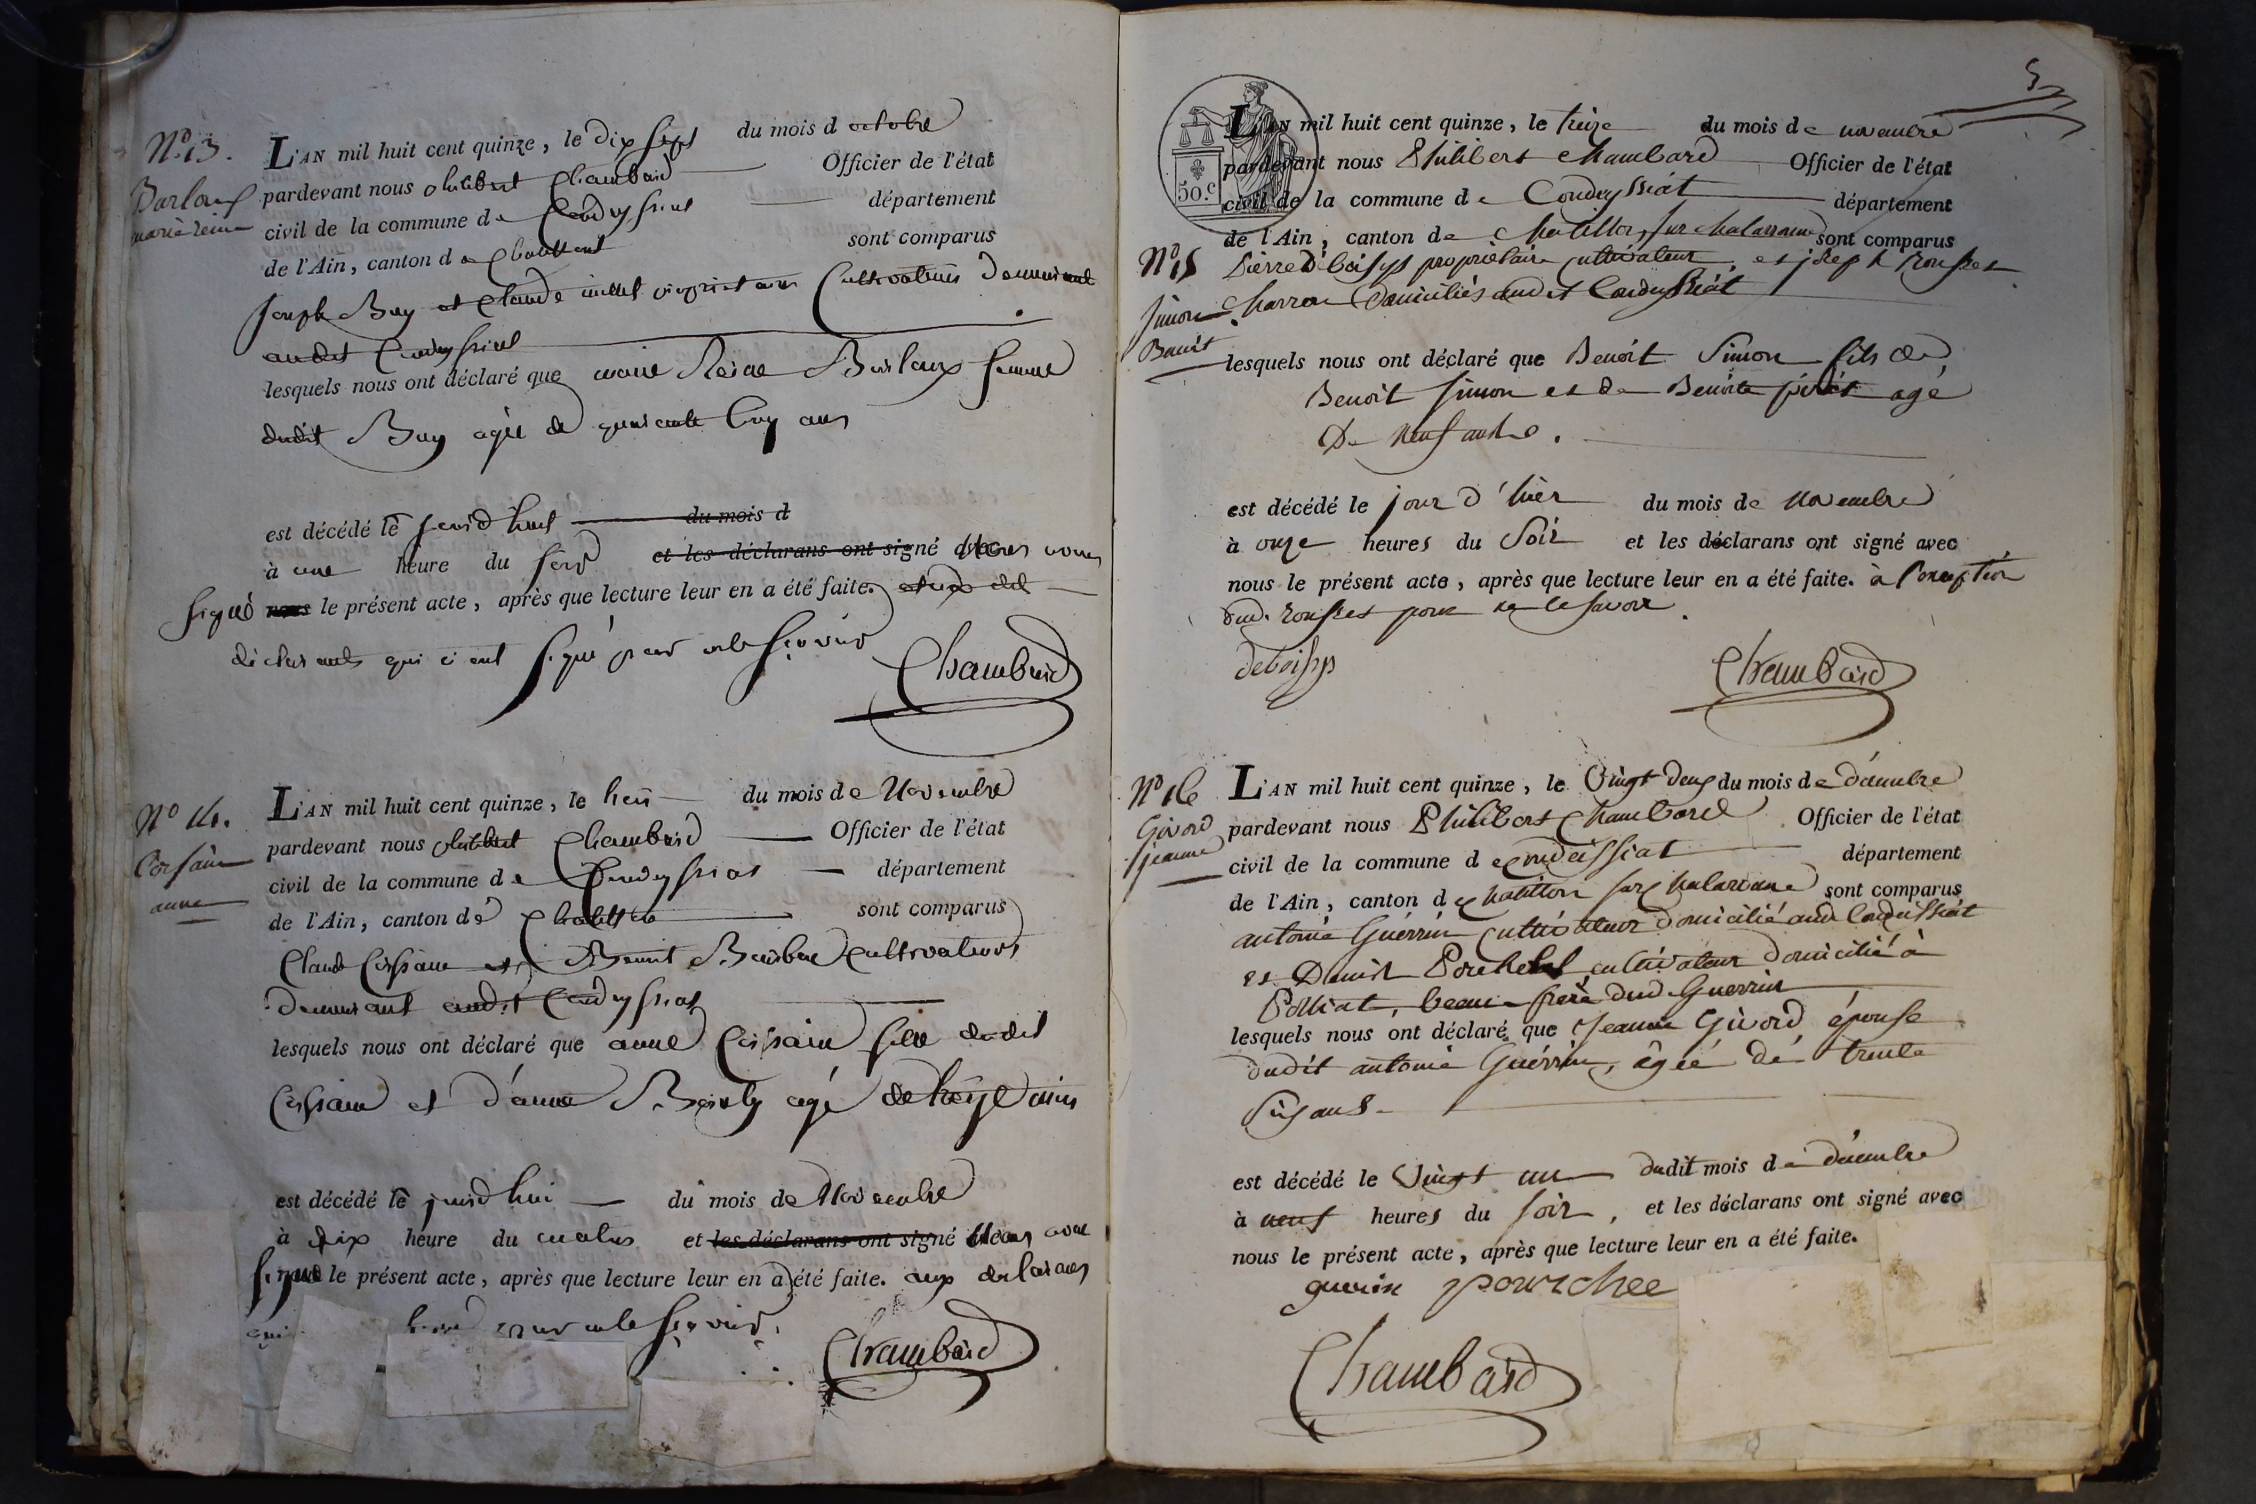 N.° 13.
Barloup
marie reine
L'AN mil huit cent quinze, le dix sept du mois d octobre
pardevant nous philibert Chambard Officier de l'état
civil de la commune de Condeyssiat département
de l'Ain, canton de Chatillont sont comparus
Joseph Buy et Claude millet proprietaires Cultivateurs demeurant
audit Condeyssiat
lesquels nous ont déclaré que marie Reine Barloup femme
dudit Buy agée de ans
est décédé le jourd'huit du mois d
à une heure du soir et les déclarans ont signé
signé nous le présent acte, après que lecture leur en a été faite.
déclarants qui ont signé pour ne le sçavoir
Chambard
N° 14.
Corsain
anne
L'AN mil huit cent quinze, le du mois de Novembre
pardevant nous philibert Chambard Officier de l'état
civil de la commune de Condeyssiat département
de l'Ain, canton de Chatillon sont comparus
Claude Corsain et Benoit Barbu Cultivateurs
demeurant audit Condeyssiat
lesquels nous ont déclaré que anne Corsain fille dudit
Corsain et d'anne agé de
est décédé le jourd'hui du mois de Novembre
à dix heure du matin et les déclarans ont signé
signé le présent acte, après que lecture leur en a été faite. aux declarans
qui pour ne le sçavoir.
Chambard
5
50.c
L'AN mil huit cent quinze, le treize du mois de novembre
pardevant nous Philibert Chambard Officier de l'état
civil de la commune de Condeyssiat département
de l'Ain, canton de Chatillon sur Chalaronne sont comparus
N° 15
Pierre Deboisys propriétaire cultivateur et joseph rousset
Simon
Benoit
charron domiciliés audit Condeyssiat
lesquels nous ont déclaré que Benoit Simon fils de
Benoit Simon et de Benoite agé
De neuf
est décédé le jour d'hier du mois de Novembre
à onze heures du Soir et les déclarans ont signé avec
nous le présent acte, après que lecture leur en a été faite. à l'exception
dud. rousset pour ne le savoir.
deboisys
Chambard
N° 16
Givord
jeanne
L'AN mil huit cent quinze, le Vingt deux du mois de décembre
pardevant nous Philibert Chambard Officier de l'état
civil de la commune de condeissiat département
de l'Ain, canton de chatillon sur chalaronne sont comparus
antoine Guérrin cultivateur domicilié aud. Condeissiat
et Denis cultivateur domicilié à
Polliat, beau frere dud. Guerrin
lesquels nous ont déclaré que Jeanne Givord épouse
dudit antoine Guérrin, âgée de trente
Six ans
est décédé le Vingt un dudit mois de décembre
à neuf heures du soir, et les déclarans ont signé avec
nous le présent acte, après que lecture leur en a été faite.
guerin pourchee
Chambard